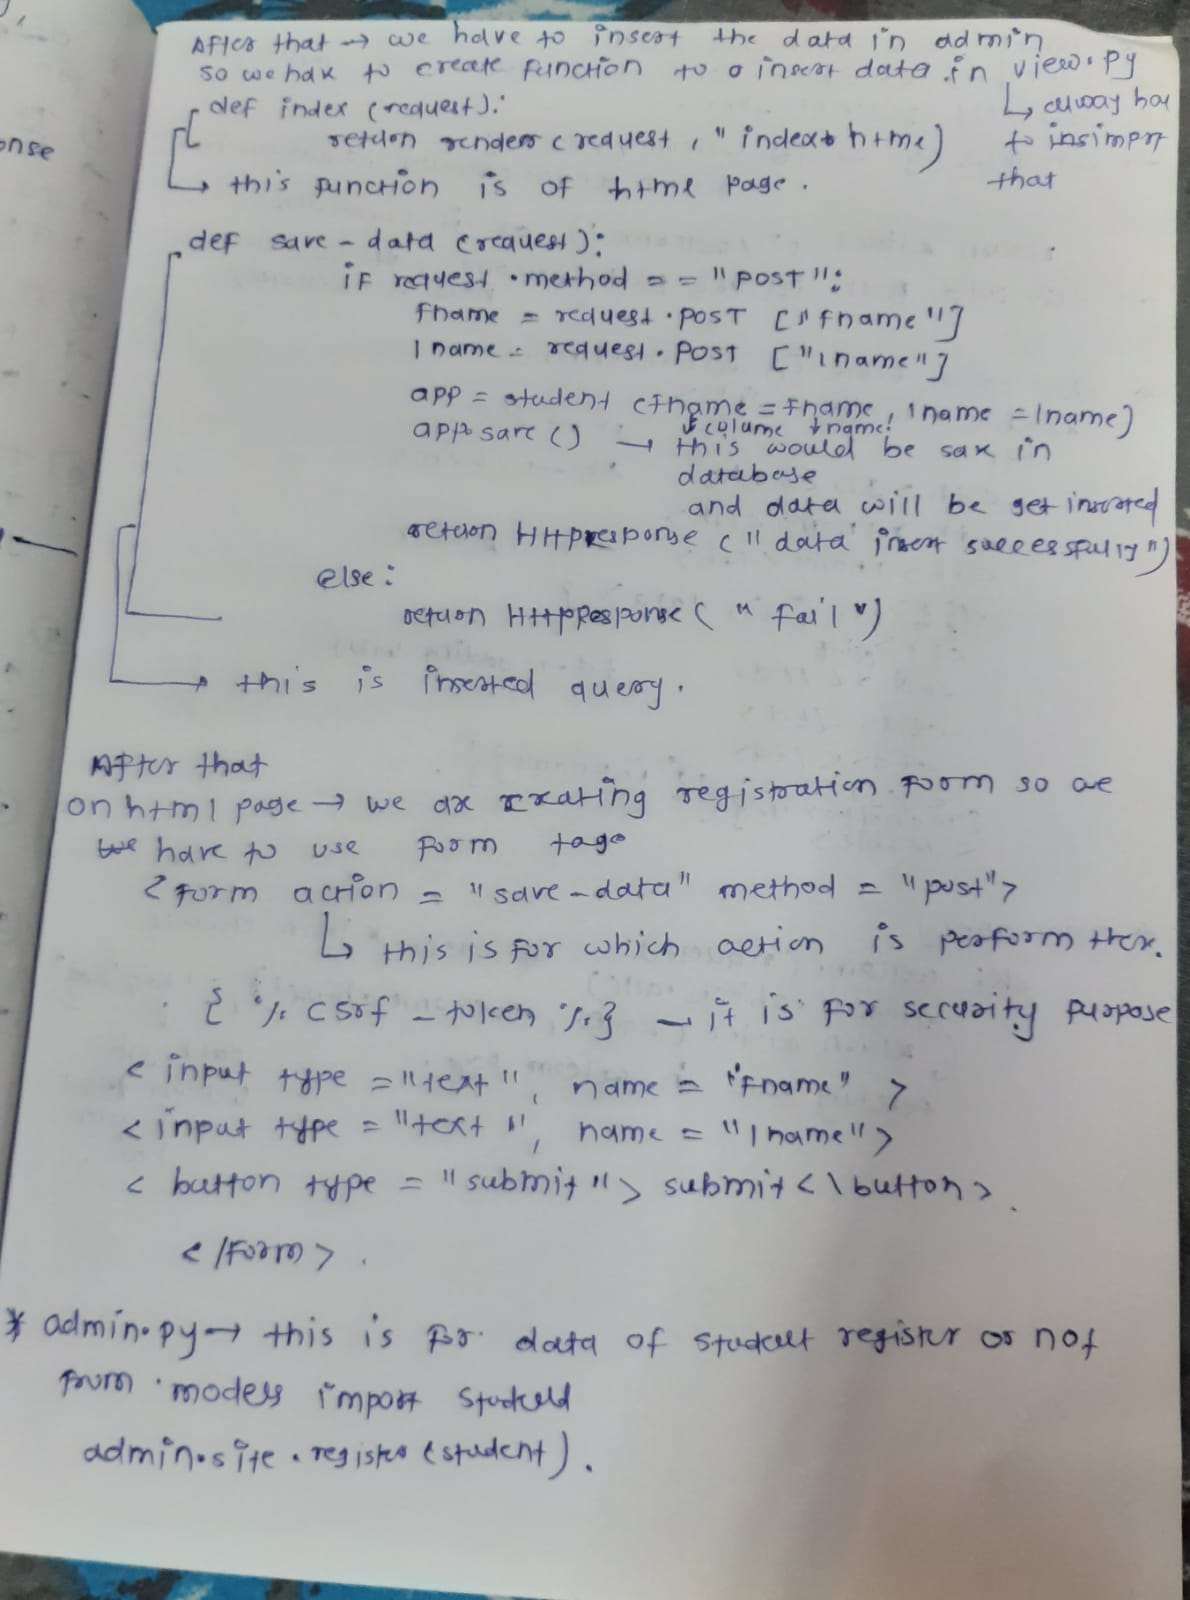 onse
After that → we have to insert the data in admin
so we have to create function to insert data in view.py
↳ alway have
to import
that
def index (request):
return render (request, "index.html)
↳ this function is of html page.
def save-data (request):
if request.method == "POST":
fname = request.POST ["fname"]
lname = request.POST ["lname"]
app = student (fname = fname, lname = lname)
↓ colume ↓ name.
app.save () → this would be save in
database
and data will be get inserted
return HttpResponse ("data insert successfully")
else:
return HttpResponse ("fail")
→ this is inserted query.
After that
on html page → we are creating registration form so we
we have to use form tage
<form action = "save-data" method = "post">
↳ this is for which action is perform ther.
{% csrf_token %} → it is for security purpose
<input type = "text", name = "fname" >
<input type = "text", name = "lname">
< button type = "submit"> submit<\button>.
</form>.
* admin.py → this is for data of student register or not
from .models import student
admin.site.register (student).